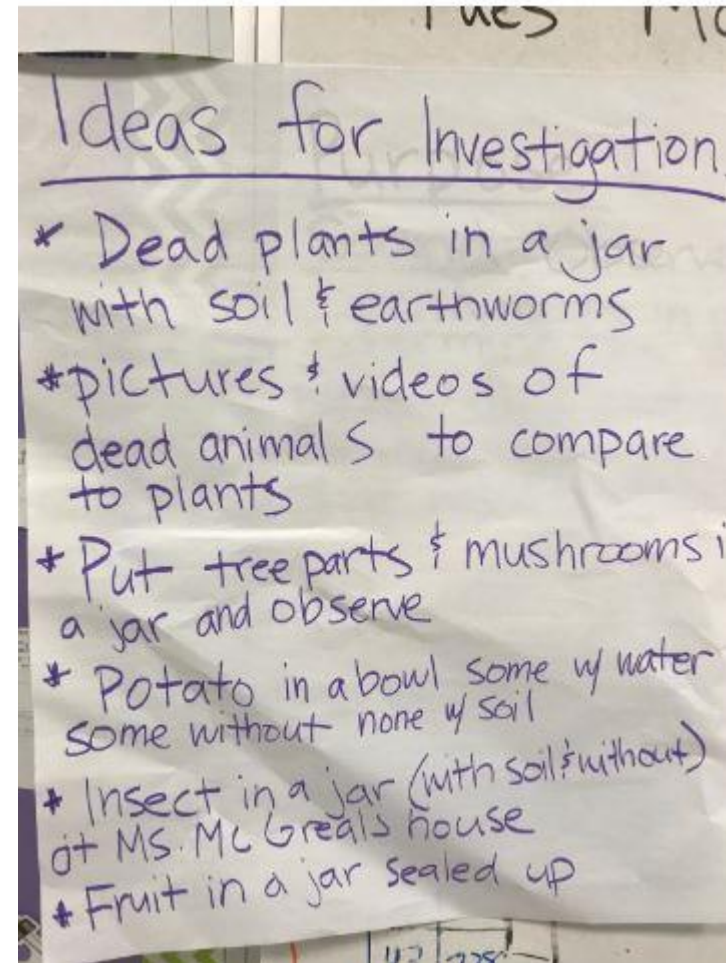 Tues Mo
Ideas for Investigation
* Dead plants in a jar
with soil & earthworms
* pictures & videos of
dead animals to compare
to plants
* Put tree parts & mushrooms i
a jar and observe
* Potato in a bowl some w/ water
some without none w/ soil
* Insect in a jar (with soil & without)
at Ms. McGreals house
* Fruit in a jar sealed up